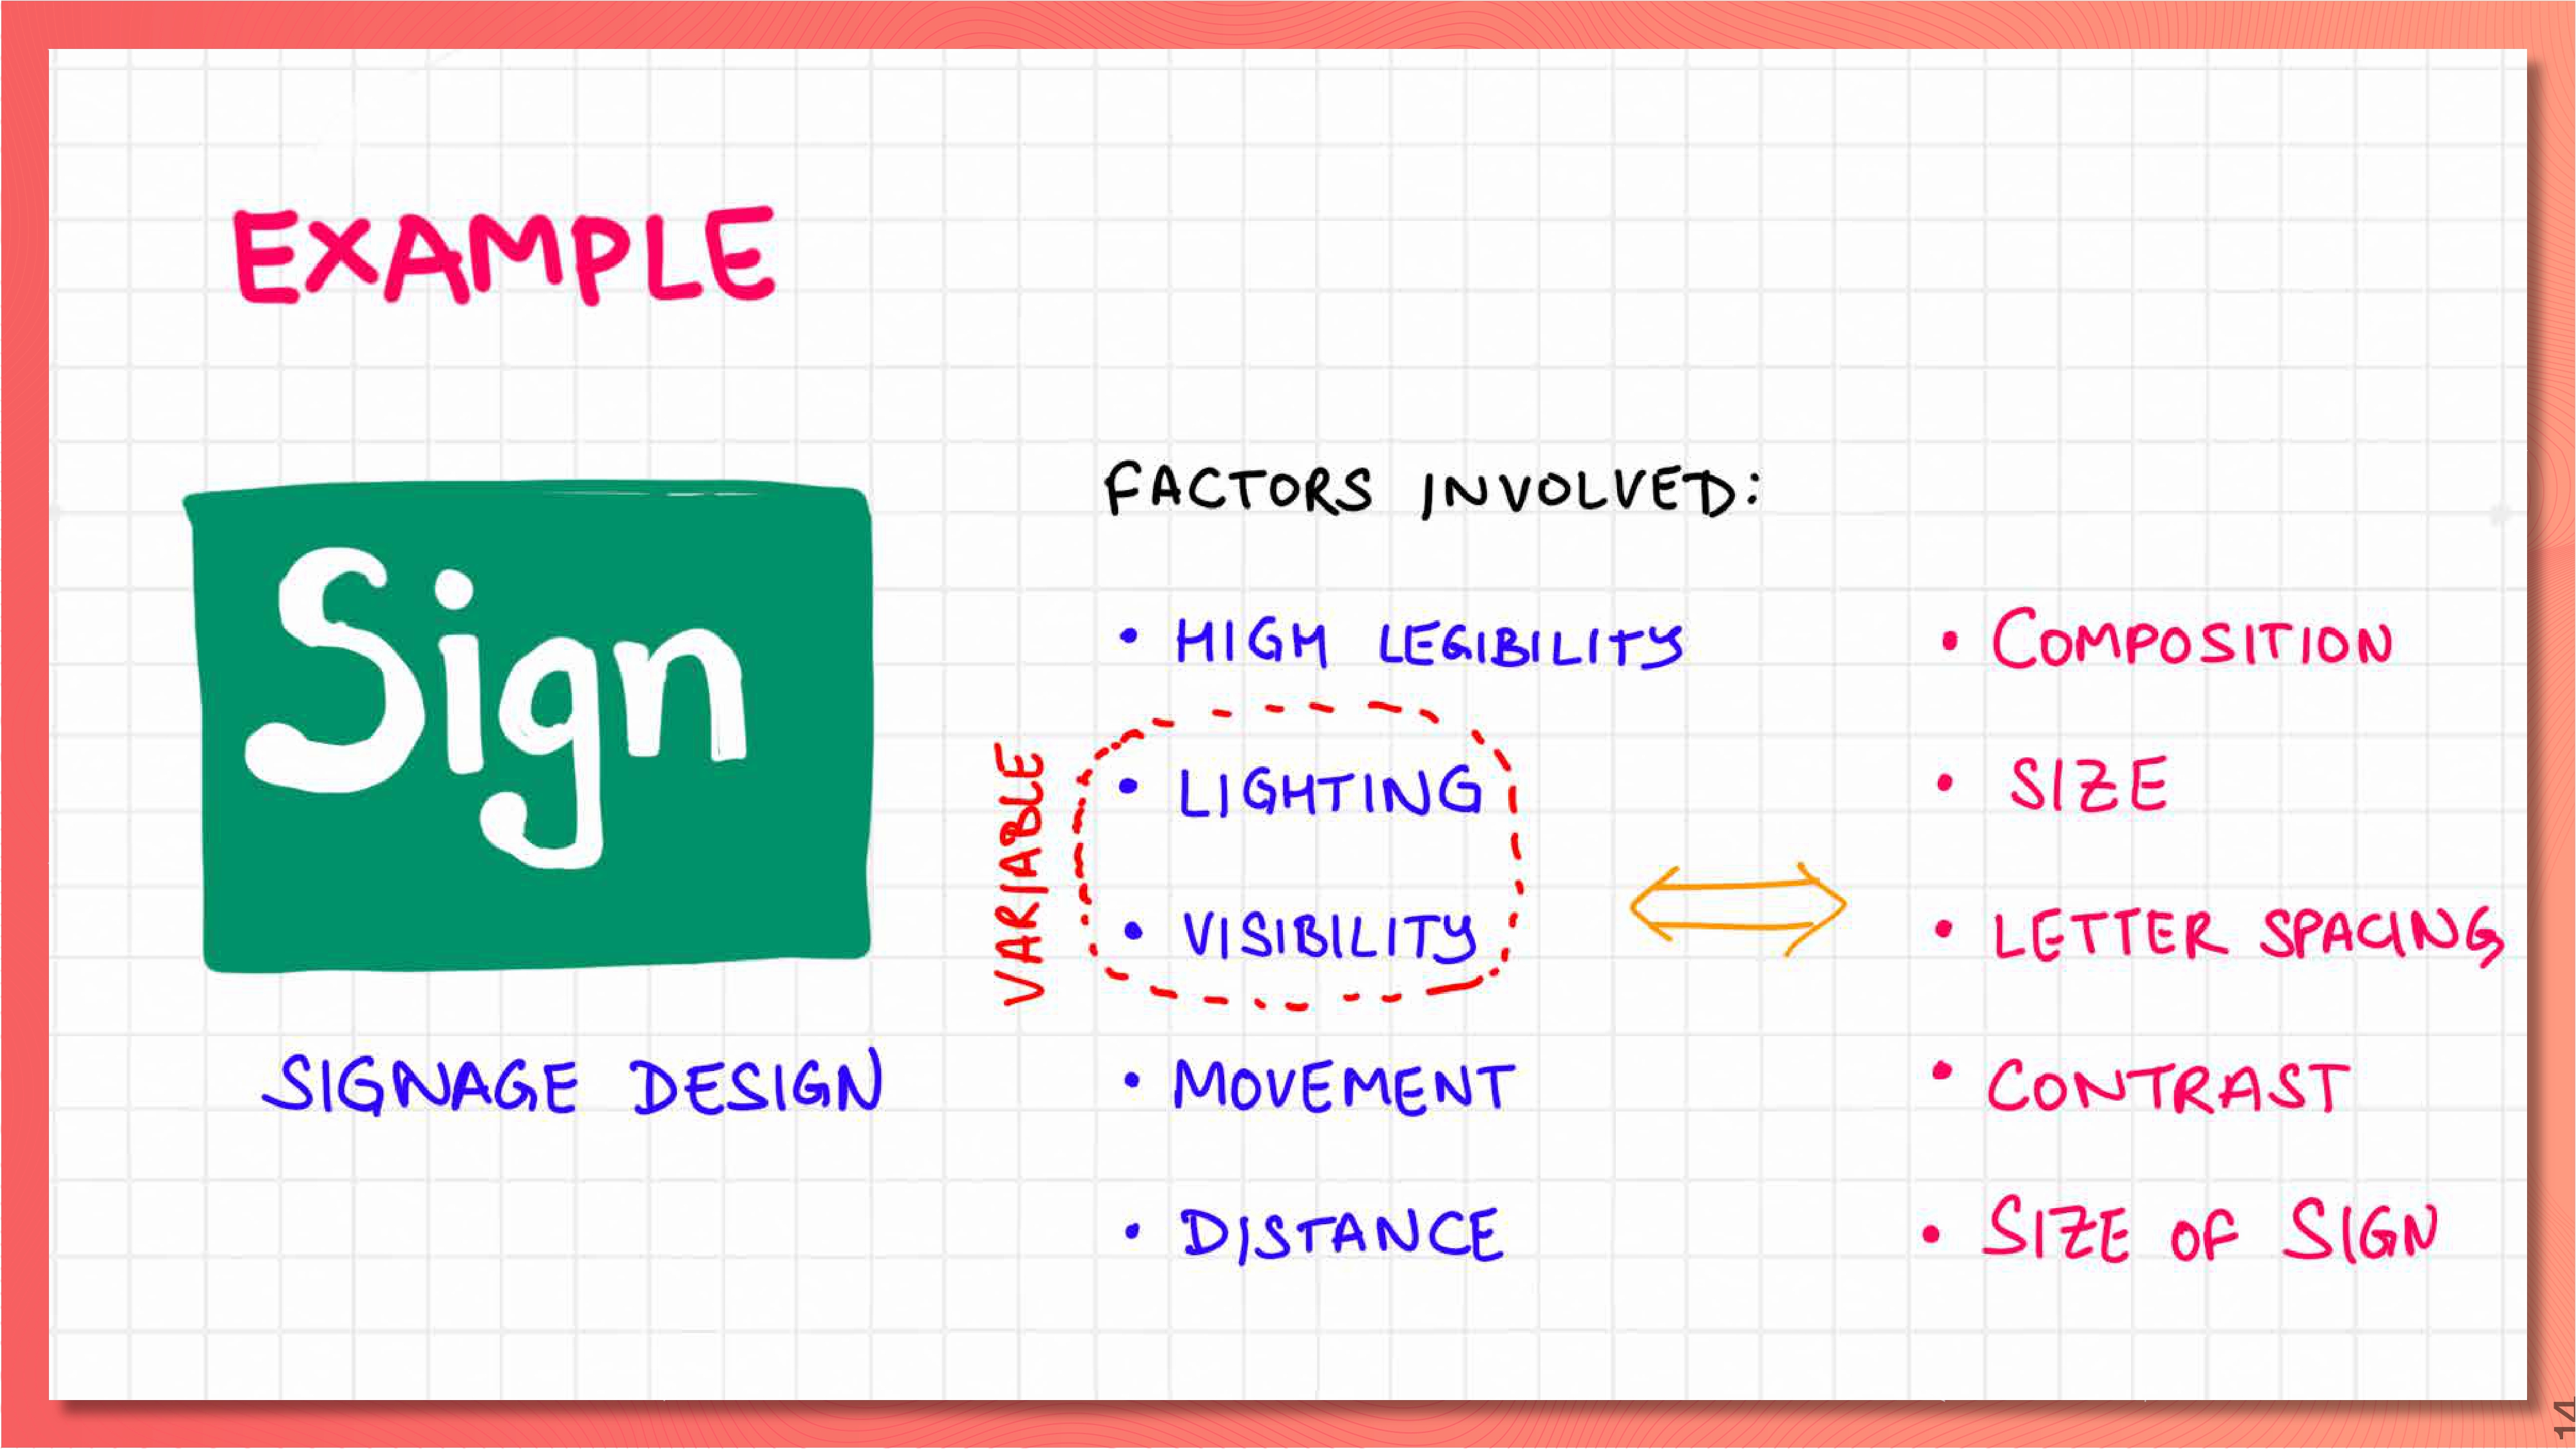 EXAMPLE
Sign
SIGNAGE DESIGN
FACTORS INVOLVED:
• HIGH LEGIBILITY
• LIGHTING
• VISIBILITY
• MOVEMENT
• DISTANCE
VARIABLE
• COMPOSITION
• SIZE
• LETTER SPACING
• CONTRAST
• SIZE OF SIGN
14